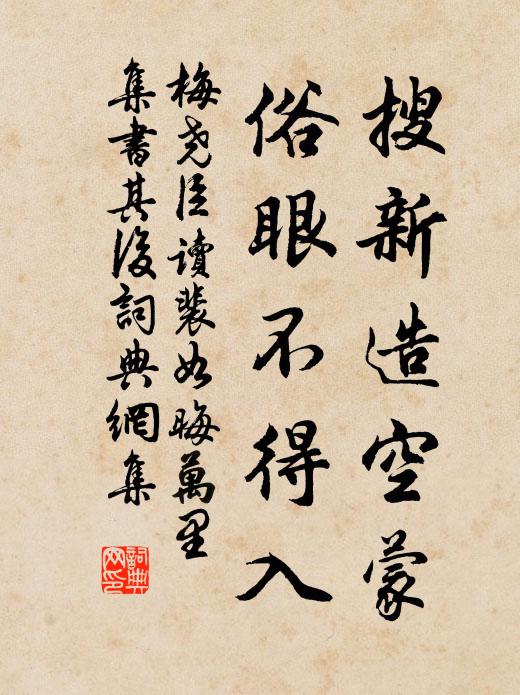 搜新造空蒙
俗眼不得入
梅尧臣讀裴如晦萬里
集書其後詞典網集
詞典
网印